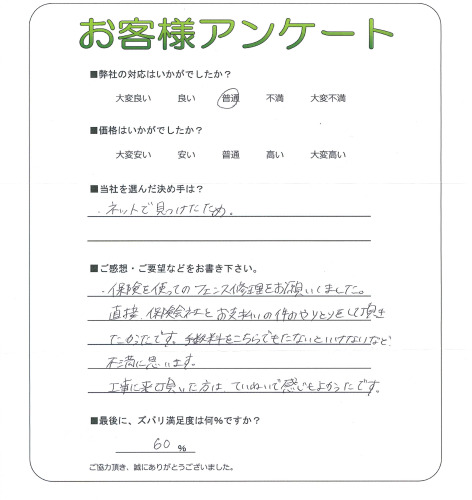 お客様アンケート
■弊社の対応はいかがでしたか?
大変良い 良い 普通 不満 大変不満
■価格はいかがでしたか?
大変安い 安い 普通 高い 大変高い
■当社を選んだ決め手は?
・ネットで見つけたため。
■ご感想・ご要望などをお書き下さい。
・保険を使ってのフェンス修理をお願いしました。
直接、保険会社とお支払いの件のやりとりをして頂き
たかったです。手数料をこちらでもたないといけないなど
不満に思います。
工事に来て頂いた方は、ていねいで感じもよかったです。
■最後に、ズバリ満足度は何%ですか?
60 %
ご協力頂き、誠にありがとうございました。